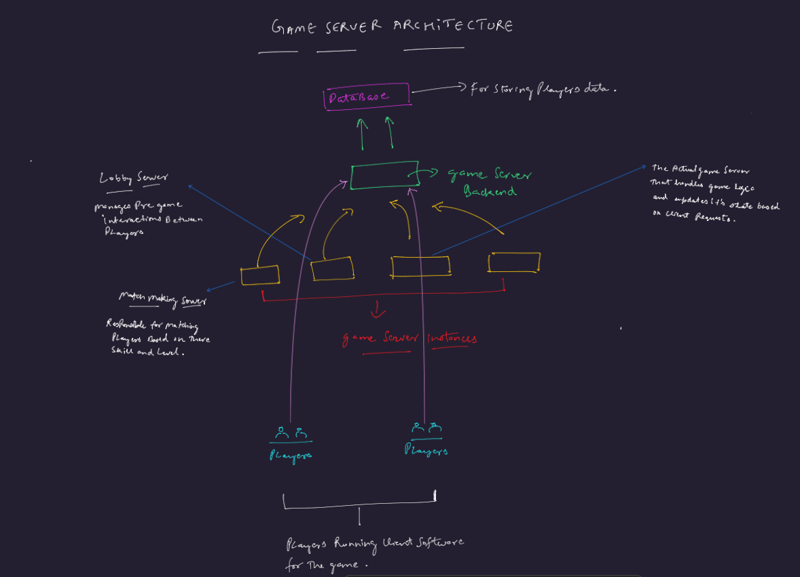 GAME SERVER ARCHITECTURE
DataBase
For Storing Players data.
game Server
Backend
Lobby Server
manages Pre game
interactions Between
Players
The Actual game Server
That handles game Logic
and updates it's state based
on Client Requests.
Match making Server
Responsible for matching
Players Based on There
Skill and Level.
game Server Instances
Players
Players
Players Running Client Software
for The game.